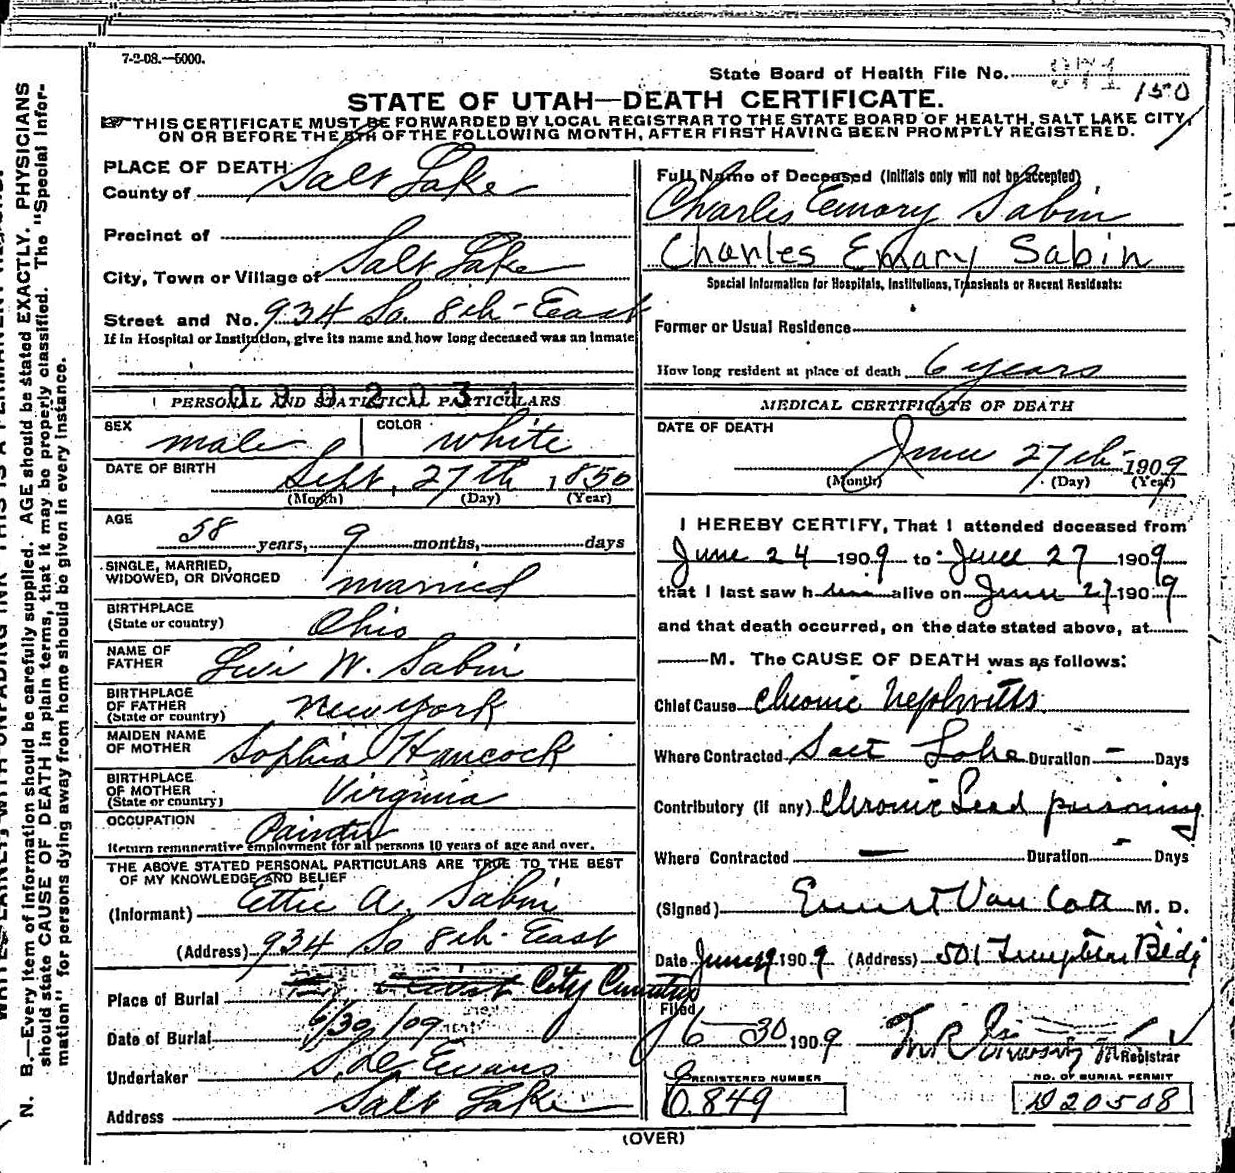 7-2-08.—5000.
State Board of Health File No. 971 150
STATE OF UTAH—DEATH CERTIFICATE.
THIS CERTIFICATE MUST BE FORWARDED BY LOCAL REGISTRAR TO THE STATE BOARD OF HEALTH, SALT LAKE CITY,
ON OR BEFORE THE 5TH OF THE FOLLOWING MONTH, AFTER FIRST HAVING BEEN PROMPTLY REGISTERED.
PLACE OF DEATH
County of Salt Lake
Precinct of
City, Town or Village of Salt Lake
Street and No. 934 So. 8th East
If in Hospital or Institution, give its name and how long deceased was an inmate
0902034
PERSONAL AND STATISTICAL PARTICULARS
SEX male COLOR white
DATE OF BIRTH Sept. 27th 1850
(Month) (Day) (Year)
AGE 58 years, 9 months, days
SINGLE, MARRIED,
WIDOWED, OR DIVORCED married
BIRTHPLACE
(State or country) Ohio
NAME OF
FATHER Levi W. Sabin
BIRTHPLACE
OF FATHER
(State or country) New York
MAIDEN NAME
OF MOTHER Sophia Hancock
BIRTHPLACE
OF MOTHER
(State or country) Virginia
OCCUPATION Painter
Return remunerative employment for all persons 10 years of age and over.
THE ABOVE STATED PERSONAL PARTICULARS ARE TRUE TO THE BEST
OF MY KNOWLEDGE AND BELIEF
(Informant) Ettie A. Sabin
(Address) 934 So 8th East
Place of Burial City Cemetery
Date of Burial 6/30/09
Undertaker Evans
Address Salt Lake
Full Name of Deceased (Initials only will not be accepted)
Charles Emory Sabin
Charles Emary Sabin
Special Information for Hospitals, Institutions, Transients or Recent Residents:
Former or Usual Residence
How long resident at place of death 6 years
MEDICAL CERTIFICATE OF DEATH
DATE OF DEATH
June 27th 1909
(Month) (Day) (Year)
I HEREBY CERTIFY, That I attended deceased from
June 24 1909 to June 27 1909
that I last saw him alive on June 27 1909
and that death occurred, on the date stated above, at
M. The CAUSE OF DEATH was as follows:
Chief Cause Chronic Nephritis
Where Contracted Salt Lake Duration — Days
Contributory (if any) Chronic Lead poisoning
Where Contracted — Duration - Days
(Signed) Ernest Van Cott M. D.
Date June 1909 (Address) 501 Templeton Bldg
Filed
6-30 1909 Registrar
REGISTERED NUMBER NO. OF BURIAL PERMIT
O.849 D20508
(OVER)
N. B.—Every item of information should be carefully supplied. AGE should be stated EXACTLY. PHYSICIANS
should state CAUSE OF DEATH in plain terms, that it may be properly classified. The "Special Infor-
mation" for persons dying away from home should be given in every instance.